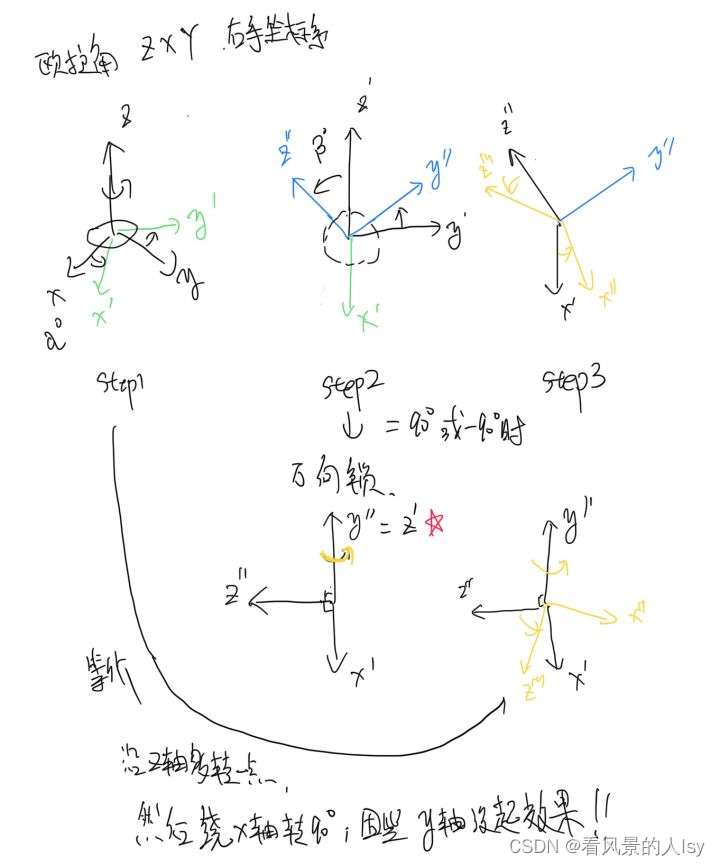 欧拉角 ZXY 右手坐标系
z
y'
y
x
x'
α°
step1
z'
z''
β°
y''
y'
x'
step2
z''
z'''
y''
x'
x''
step3
↓ = 90° 或 -90° 时
万向锁、
y'' = z' ☆
z''
x'
y''
z''
x''
z'''
x'
等价
沿Z轴多转一点、
然后绕x轴转90°，因此y轴没起效果!!
CSDN @看风景的人lsy